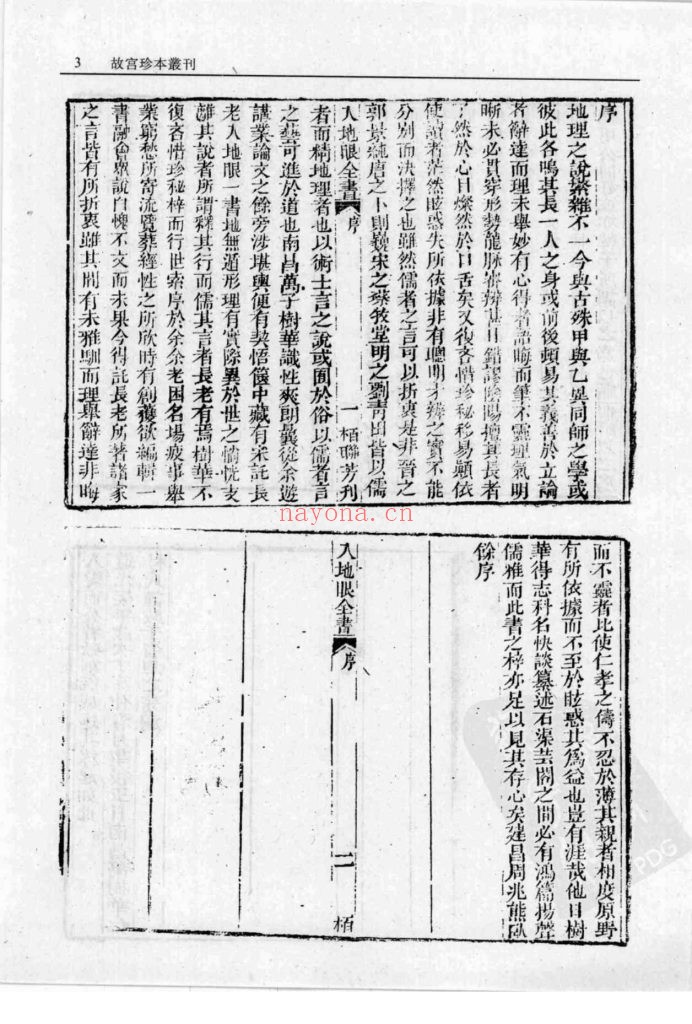 3 故宮珍本叢刊
序
地理之說紫雜不一今與古殊甲與乙異同師之學或
彼此各鳴其長一人之身或前後頻易其義善於立論
者辭達而理未舉妙有心得者語晦而筆不靈理氣明
晰未必貫穿形勢龍脈審辨甚目錯謬陰陽擅其長者
了然於心目燦然於口舌矣又復吝惜珍秘移易顛依
使讀者茫然眩惑失所依據非有聰明才辨之實不能
分别而決擇之也雖然儒者之言可以折衷是非晉之
郭景純唐之卜則巍宋之蔡牧堂明之劉青田皆以儒
入地眼全書 序 一 栢聯芳刊
者而精地理者也以術士言之說或囿於俗以儒者言
之藝可進於道也南昌萬子樹華識性爽朗曩從余遊
講業論文之餘旁涉堪輿便有契悟篋中藏有宋託長
老入地眼一書地無遁形理有實際異於世之惝恍支
離其說者所謂釋其行而儒其言者長老有焉樹華不
復吝惜珍秘梓而行世索序於余余老困名場疲事舉
業窮愁所寄流覽葬經性之所欣時有創獲欲編輯一
書融會眾說自愧不文而未果今得託長老所著諸家
之言皆有所折衷雖其間有未雅馴而理與辭達非晦
而不靈者比使仁孝之儔不忍於薄其親者相度原野
有所依據而不至於眩惑其為益也豈有涯哉他日樹
華得志科名快談纂述石渠芸閣之間必有鴻篇揚聲
儒雅而此書之梓亦足以見其存心矣建昌周兆熊臥
餘序
入地眼全書 序 二 栢
nayona.cn
PDG